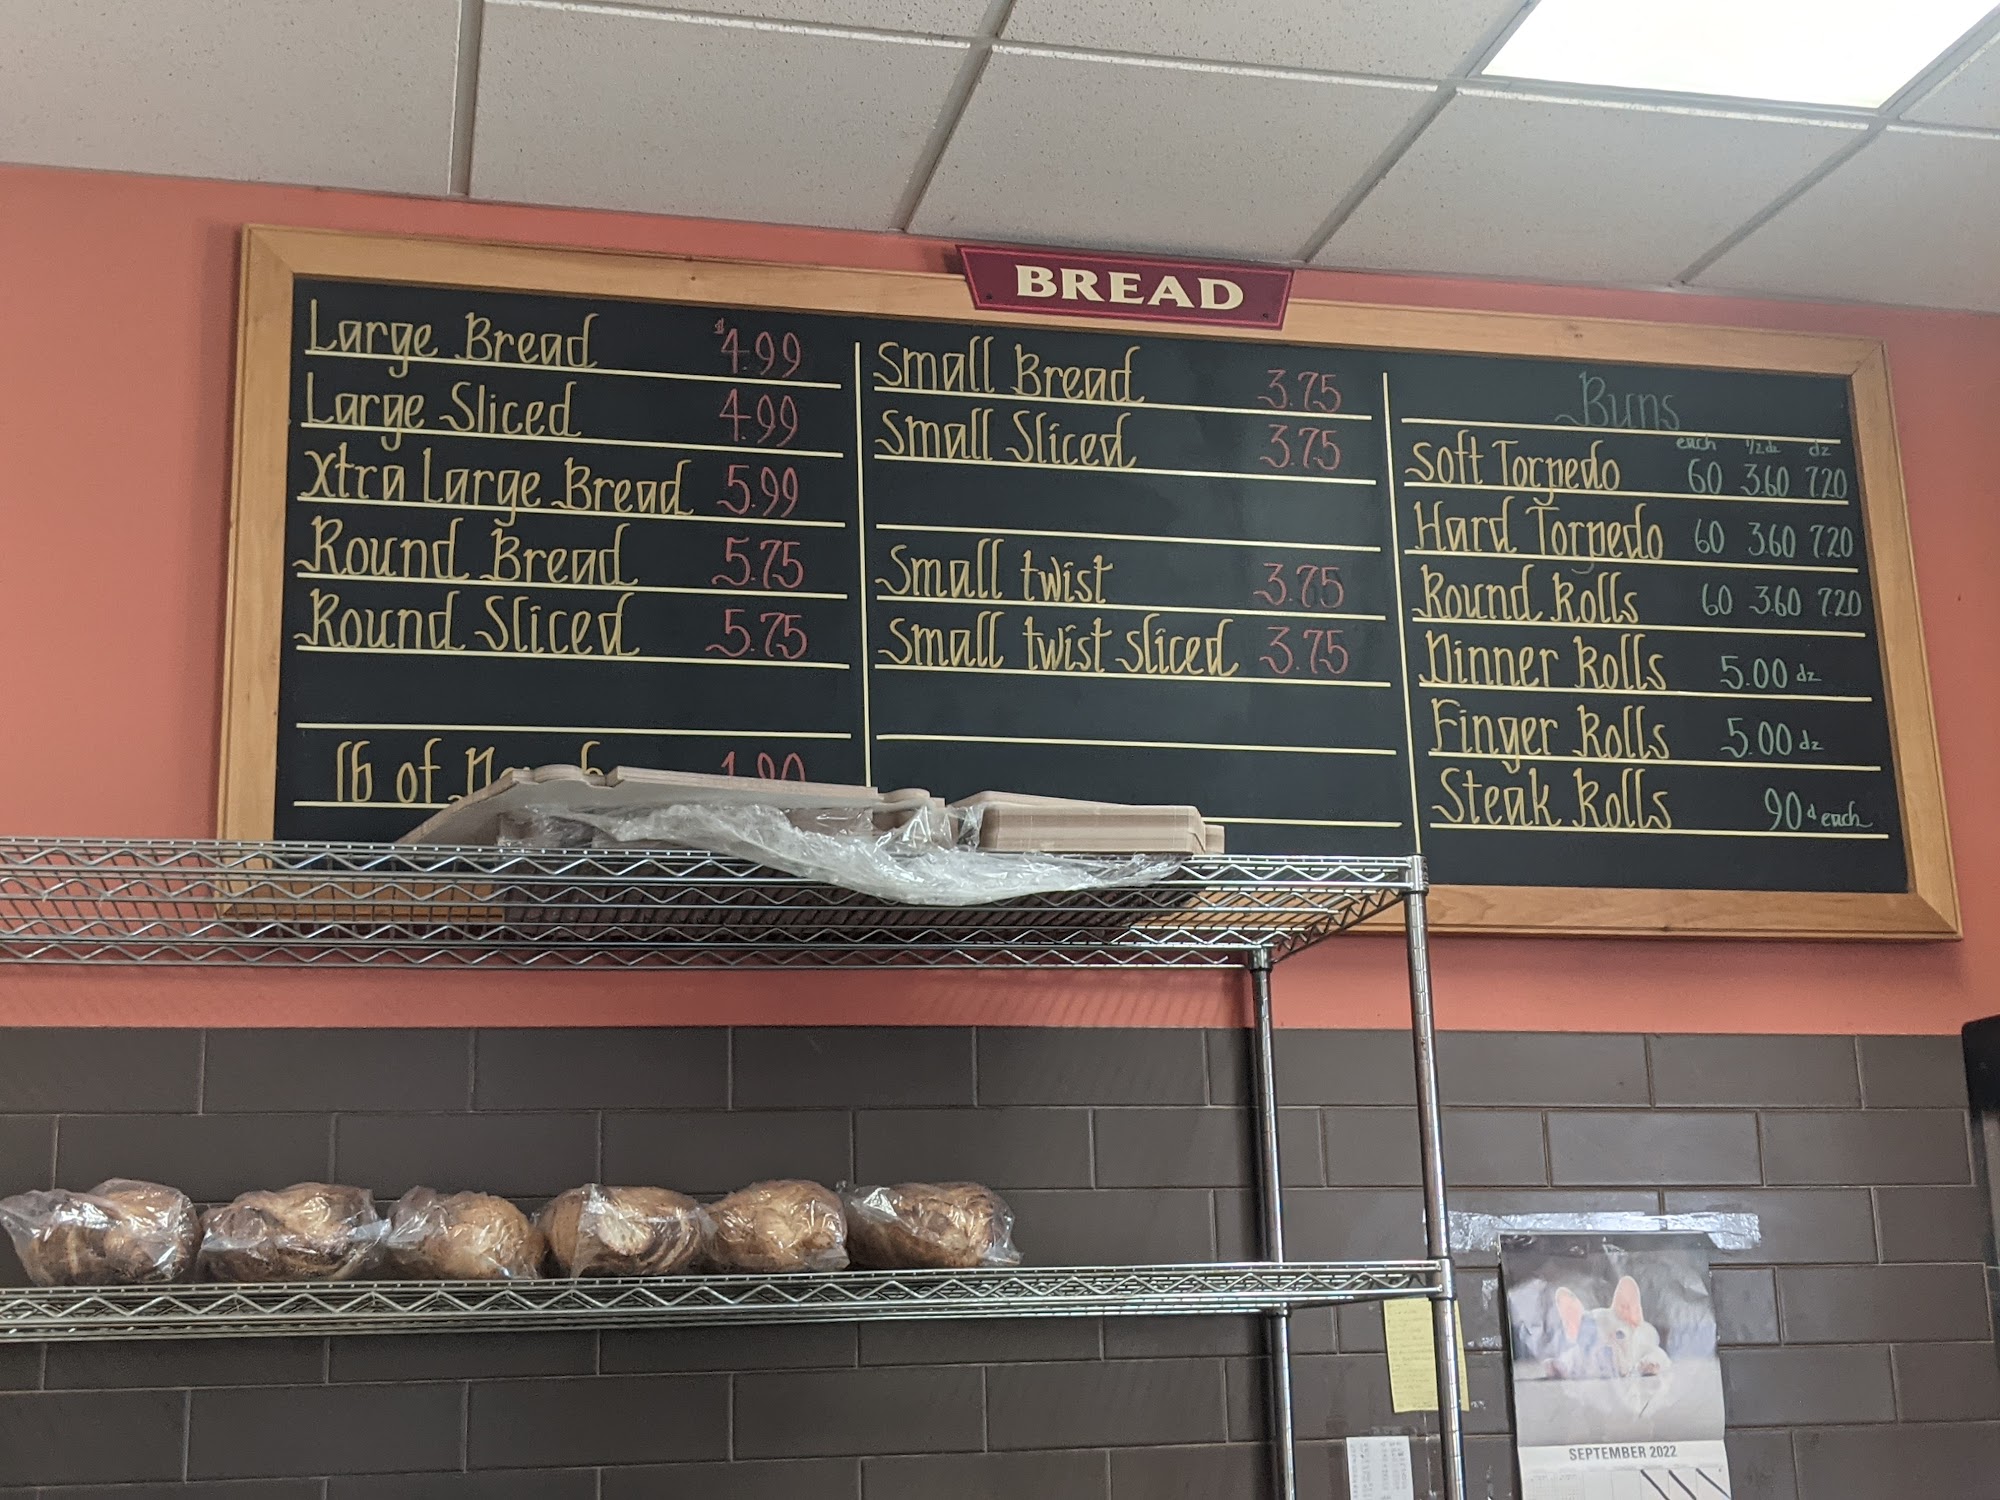 BREAD
Large Bread $4.99
Large Sliced 4.99
Xtra Large Bread 5.99
Round Bread 5.75
Round Sliced 5.75
lb of
Small Bread 3.75
Small Sliced 3.75
Small twist 3.75
Small twist sliced 3.75
Buns
each 1/2 dz dz
Soft Torpedo 60 3.60 7.20
Hard Torpedo 60 3.60 7.20
Round Rolls 60 3.60 7.20
Dinner Rolls 5.00 dz
Finger Rolls 5.00 dz
Steak Rolls 90 each
SEPTEMBER 2022